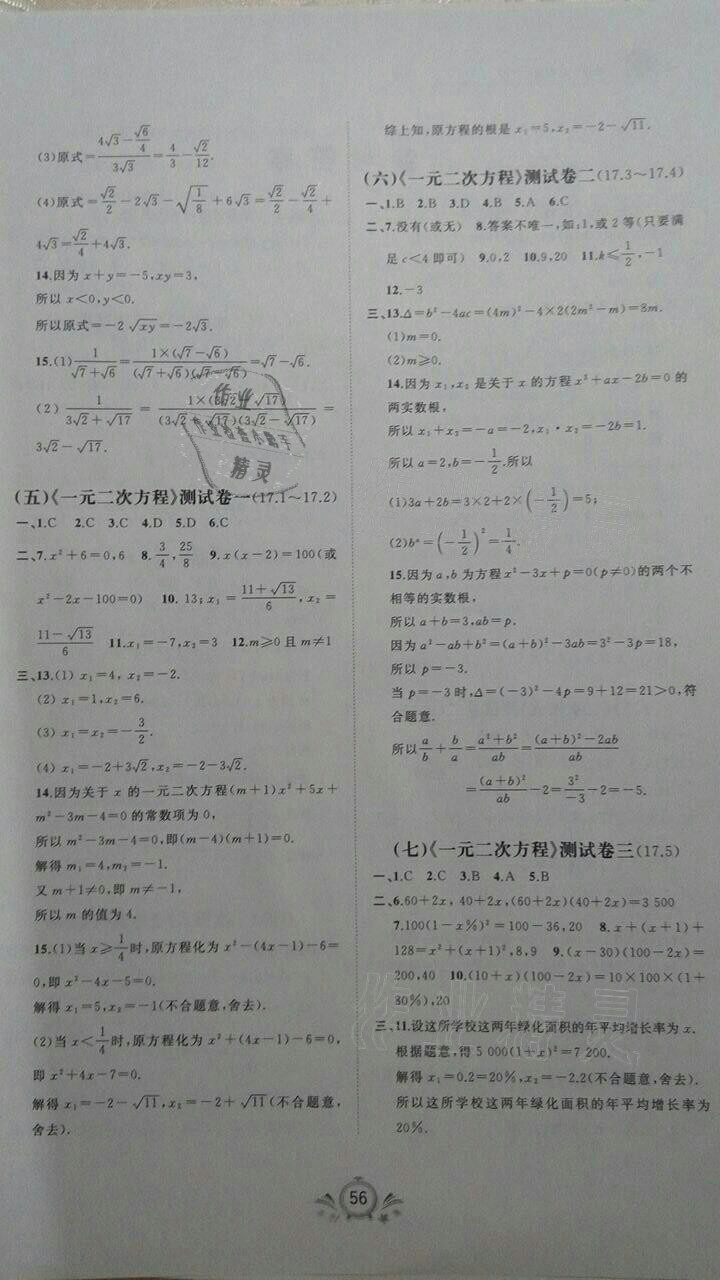 (3)原式=(4√3-√6/4)/(3√3)=4/3-√2/12.
(4)原式=√2/2-2√3-√(1/8)+6√3=√2/2-√2/4+
4√3=√2/4+4√3.
14.因为x+y=-5,xy=3,
所以x<0,y<0.
所以原式=-2√xy=-2√3.
15.(1)1/(√7+√6)=1×(√7-√6)/(√7+√6)(√7-√6)=√7-√6.
(2)1/(3√2+√17)=1×(3√2-√17)/(3√2+√17)(3√2-√17)=
3√2-√17.
(五)《一元二次方程》测试卷一(17.1~17.2)
一、1.C 2.C 3.C 4.D 5.D 6.C
二、7.x²+6=0,6 8.3/4,25/8 9.x(x-2)=100(或
x²-2x-100=0) 10.13;x₁=(11+√13)/6,x₂=
(11-√13)/6 11.x₁=-7,x₂=3 12.m≥0且m≠1
三、13.(1)x₁=4,x₂=-2.
(2)x₁=1,x₂=6.
(3)x₁=x₂=-3/2.
(4)x₁=-2+3√2,x₂=-2-3√2.
14.因为关于x的一元二次方程(m+1)x²+5x+
m²-3m-4=0的常数项为0,
所以m²-3m-4=0,即(m-4)(m+1)=0.
解得m₁=4,m₂=-1.
又m+1≠0,即m≠-1,
所以m的值为4.
15.(1)当x≥1/4时,原方程化为x²-(4x-1)-6=
0,即x²-4x-5=0.
解得x₁=5,x₂=-1(不合题意,舍去).
(2)当x<1/4时,原方程化为x²+(4x-1)-6=0,
即x²+4x-7=0.
解得x₁=-2-√11,x₂=-2+√11(不合题意,
舍去).
综上知,原方程的根是x₁=5,x₂=-2-√11.
(六)《一元二次方程》测试卷二(17.3~17.4)
一、1.B 2.B 3.D 4.B 5.A 6.C
二、7.没有(或无) 8.答案不唯一,如:1,或2等(只要满
足c<4即可) 9.0,2 10.9,20 11.k≤1/2,-1
12.-3
三、13.Δ=b²-4ac=(4m)²-4×2(2m²-m)=8m.
(1)m=0.
(2)m≥0.
14.因为x₁,x₂是关于x的方程x²+ax-2b=0的
两实数根,
所以x₁+x₂=-a=-2,x₁·x₂=-2b=1.
所以a=2,b=-1/2.所以
(1)3a+2b=3×2+2×(-1/2)=5;
(2)bᵃ=(-1/2)²=1/4.
15.因为a,b为方程x²-3x+p=0(p≠0)的两个不
相等的实数根,
所以a+b=3,ab=p.
因为a²-ab+b²=(a+b)²-3ab=3²-3p=18,
所以p=-3.
当p=-3时,Δ=(-3)²-4p=9+12=21>0,符
合题意.
所以a/b+b/a=(a²+b²)/ab=((a+b)²-2ab)/ab
=(a+b)²/ab-2=3²/-3-2=-5.
(七)《一元二次方程》测试卷三(17.5)
一、1.C 2.C 3.B 4.A 5.B
二、6.60+2x,40+2x,(60+2x)(40+2x)=3 500
7.100(1-x%)²=100-36,20 8.x+(x+1)+
128=x²+(x+1)²,8,9 9.(x-30)(100-2x)=
200,40 10.(10+x)(100-2x)=10×100×(1+
80%),20
三、11.设这所学校这两年绿化面积的年平均增长率为x.
根据题意,得5 000(1+x)²=7 200.
解得x₁=0.2=20%,x₂=-2.2(不合题意,舍去).
所以这所学校这两年绿化面积的年平均增长率为
20%.
56